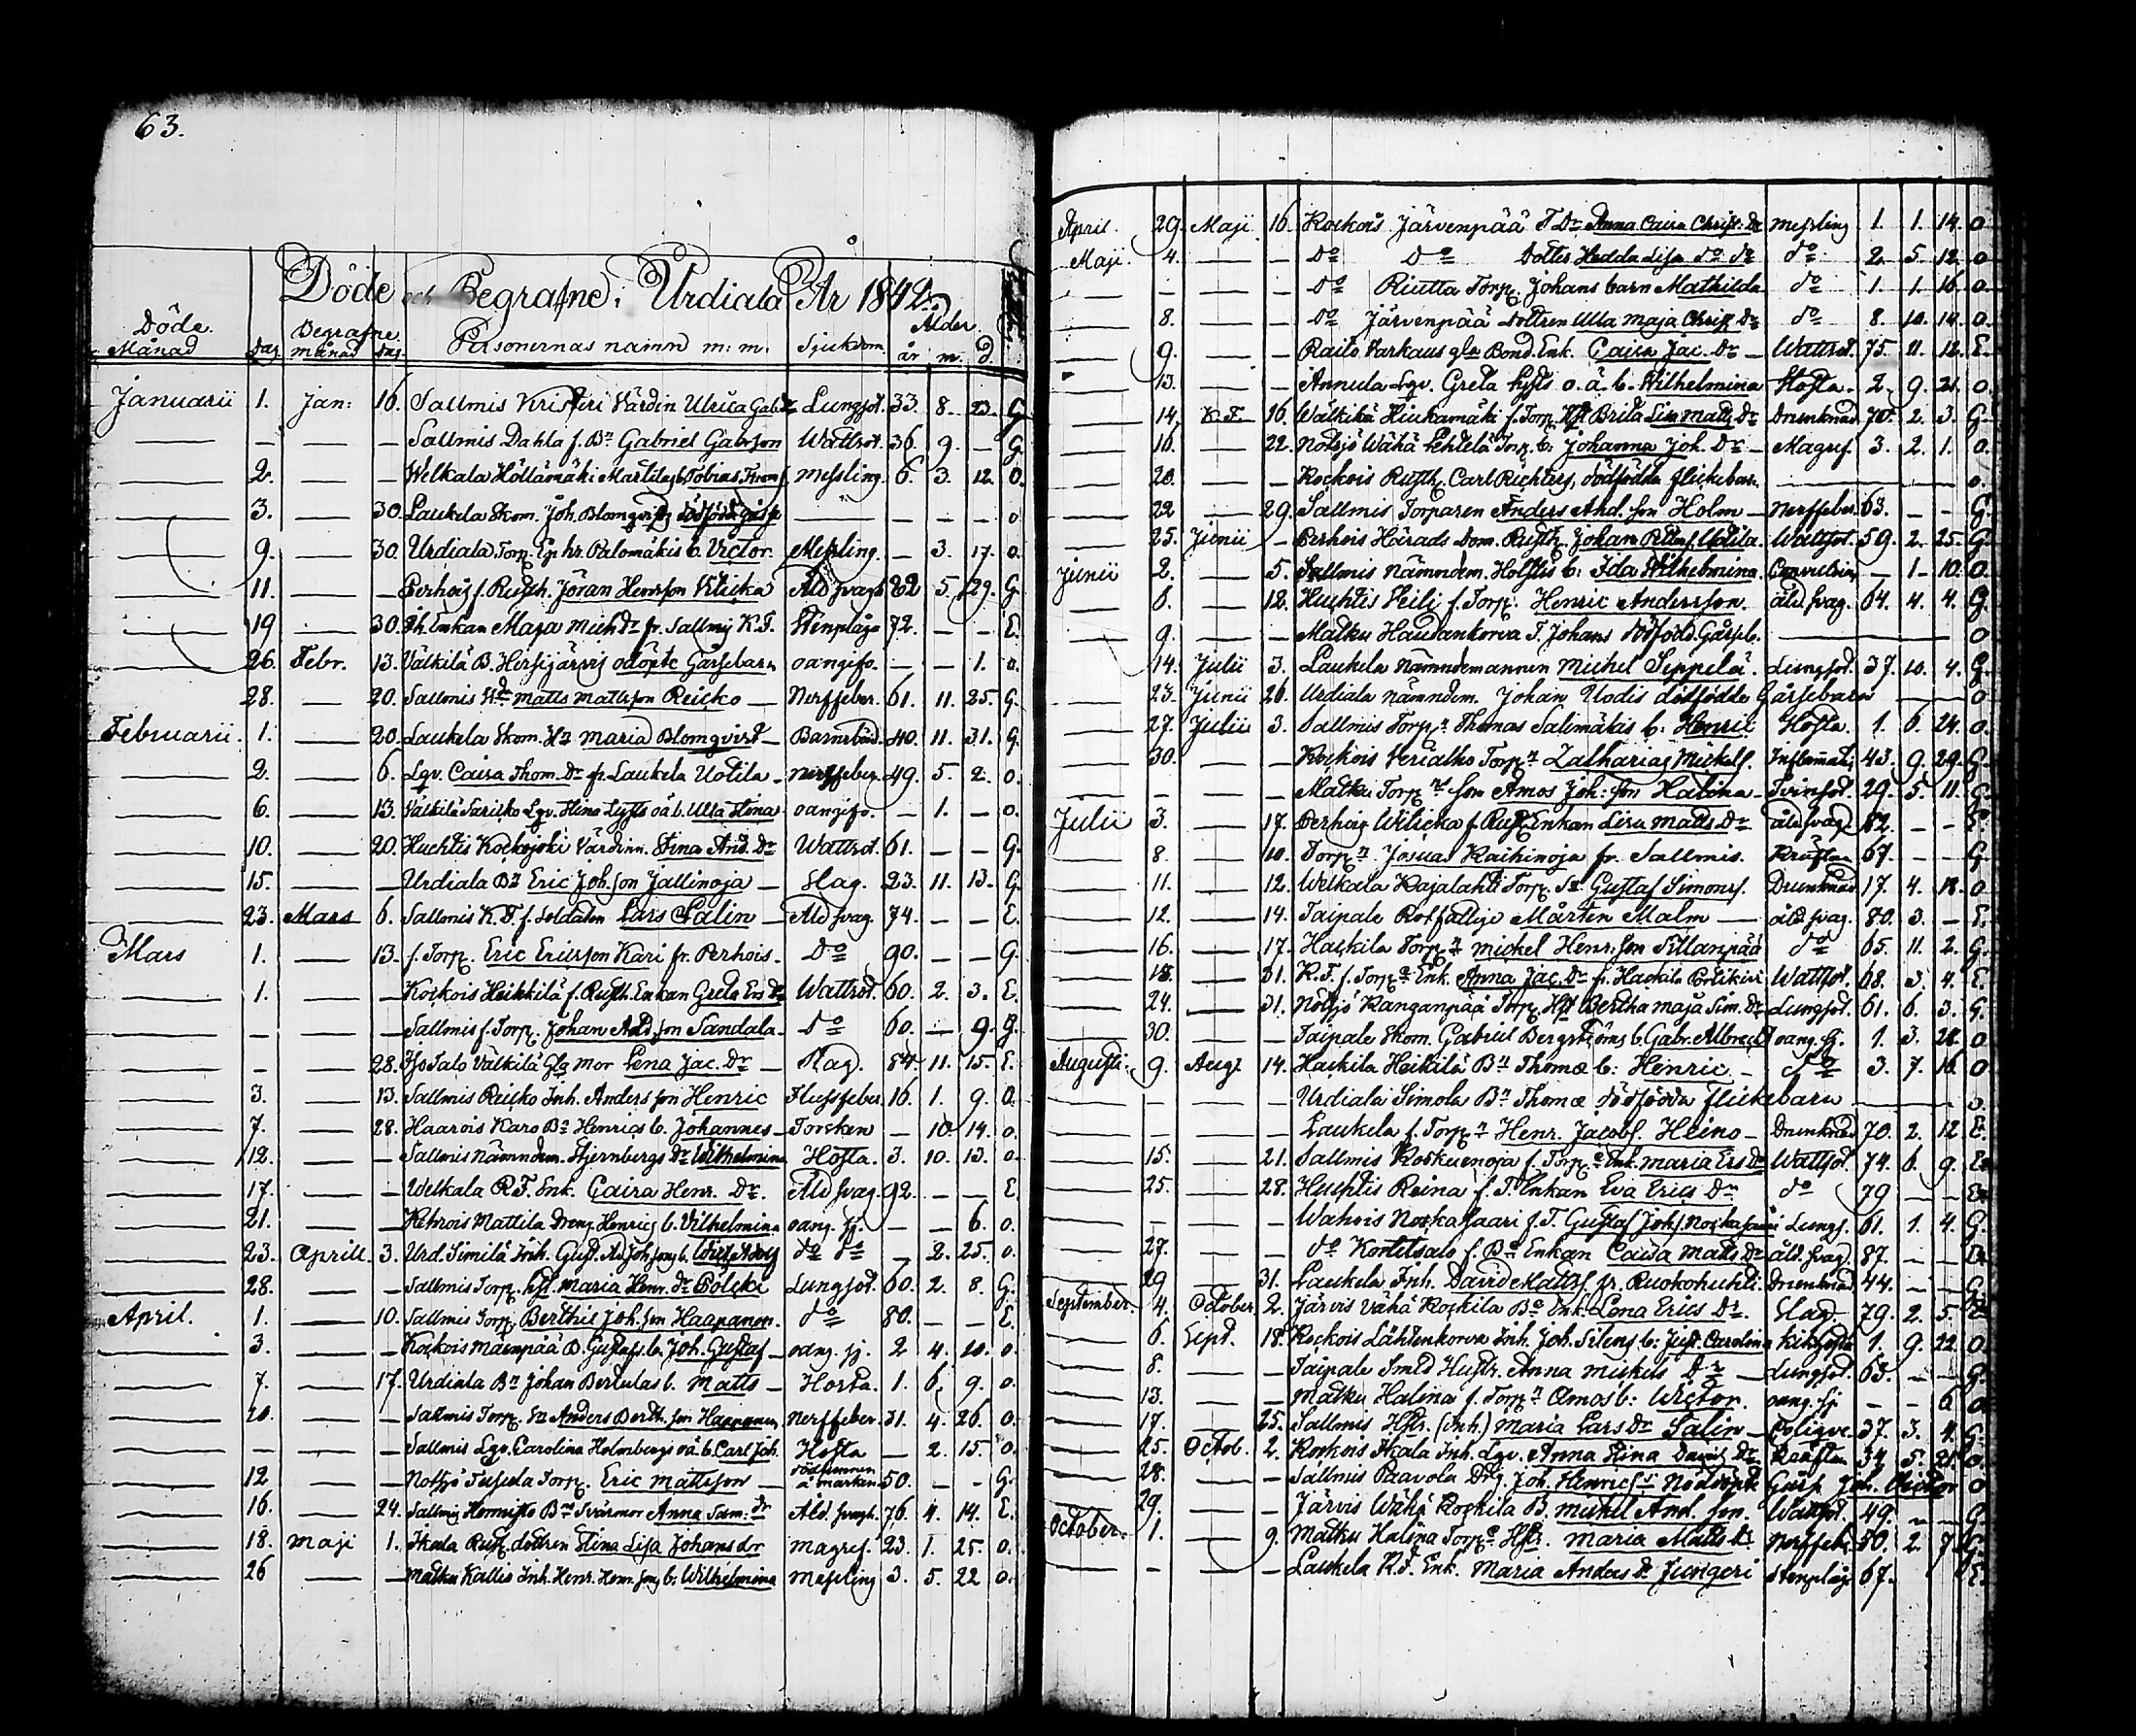 63.
Döde och Begrafne i Urdiala År 1842.
Döde Begrafne Ålder
Månad Dag månad Dag Personernas namn m: m. Sjukdom år m. d.
Januarii 1. Jan: 16. Sallmis Kristeri Värdin Ulrica Gab. Dr Lungsot. 33. 8. 23. G
— — — — Sallmis Dahla f. Bn Gabriel Gabrson Wattsot. 36. 9. — G
— 2. — — Welkala Höllämäki Martilas b. Tobias Messling. 6. 3. 12. O.
— 3. — 30. Laukela Skom. Joh. Blomqvists dödfödde gåsse — — — — o
— 9. — 30. Urdiala Torp. Palomäkis b. Victor. Messling. — 3. 17. o.
— 11. — — Perhois f. Rusth. Jöran Henrsson Vilicka Åld svagh. 82 5. 29. G.
— 19 — 30. Enkan Maja Mich Dr fr. Sallmis K. F. Stenplåga 72. — — E.
— 26. Febr. 13. Välkilä B. Hersijärvis odöpte Gåssebarn oangifv. — — 1. o.
— 28. — 20. Sallmis Matts Mattsson Reicko — Nerffeber. 61. 11. 25. G.
Februarii. 1. — 20. Laukela Skom. Hu Maria Blomqvist — Barnsbörd. 40. 11. 31. G.
— 2. — 6. Lgv. Caisa Thom. Dr fr. Laukela Uotila — Nerffeber. 49. 5. 2. o.
— 6. — 13. Välkilä Sarikko Lgv. Stina oä b. Ulla Stina oangifv. — 1. — o.
— 10. — 20. Huchtis Kockojoki Värdinn. Stina And. Dr Wattsot. 61. — — G.
— 15. — — Urdiala Bn Eric Joh. son Jallinoja — Slag. 23. 11. 13. G
— 23. Mars 6. Sallmis K. F. f. Soldaten Lars Salin — Åld svag. 74. — — E.
Mars 1. — 13. f. Torp. Eric Ericsson Kari fr. Perhois. Do 90. — — G.
— 1. — — Kockois Heikkilä f. Rusth. Enkan Greta Ers Dr Wattsot. 60. 2. 3. E.
— — — — Sallmis f. Torp. Johan And. son Sandala. Do 60. — 9. G.
— — — 28. Salo Välkilä Gla Mor Lena Jac. Dr — Slag. 84. 11. 15. E.
— 3. — 13. Sallmis Reicko Inh. Anders son Henric Flussfeber. 16. 1. 9. O.
— 7. — 28. Haarois Karo Bn Henrics b. Johannes — Torsken — 10. 14. o.
— 12. — — Sallmis Nämndem. Stjernbergs Dr Wilhelmina Hosta. 3. 10. 13. o.
— 17. — — Welkala R. F. Enk. Caisa Henr. Dr. Åld svag. 92. — — E.
— 21. — — Kehrois Mattila Dreng. Henrics b. Vilhelmina oang. sj. — — 6. o.
— 23. Aprill. 3. Urd. Similä Inh. Gust. Ad. Joh. sons b. do do — 2. 25. o.
— 28. — — Sallmis Torp. Hst. Maria Henr. Dr Bölcki Lungsot. 60. 2. 8. G.
April. 1. — 10. Sallmis Torp. Berthil Joh. son Haapanen. do 80. — — E.
— 3. — — Kockois Mäenpää B. Gustafs b. Joh. Gustaf — oang. sj. 2 4. 20. o.
— 7. — 17. Urdiala Bn Johan Bertulas b. Matts — Hosta. 1. 6. 9. o.
— 10. — — Sallmis Torp. Sn Anders Berth. son Haapanen Nerffeber. 31. 4. 26. o.
— — — — Sallmis Lgv. Carolina Holmbergs oä b. Carl Joh. Hosta — 2. 15. o.
— 12 — — Notsjö Tusula Torp. Eric Mattsson — dödfunnen å marken 50. — — G.
— 16. — 24. Sallmis Bns Svärmor Anna Sam: dr Åld. svagh. 76. 4. 14. E.
— 18. Maji 1. Ikala Rusth. dottren Stina Lisa Johans dr Magref. 23. 1. 25. o.
— 26 — — Matku Kallio Inh. Henr. Henr. sons b. Wilhelmina Messling 3. 5. 22 o.
April. 29. Maji 16. Kockois Järvenpää T Dr Anna Caisa Christ. Dr Messling 1. 1. 14. o.
Maji. 4. — — Do Do Dotter Hedda Lisa do do do 2. 5. 12. o
— — — — Do Riutta Torp. Johans barn Mathilda do 1. 1. 16. o.
— 8. — — Do Järvenpää Dottren Ulla Maja Christ. Dr do 8. 10. 14. o.
— 9. — — Railo Varkaus gla Bond. Enk. Caisa Jac. Dr — Wattsot. 75. 11. 12. E.
— 13. — — Annula Lgv. Greta o. ä. b. Wilhelmina Hosta. 2. 9. 21. o
— 14. K. F. 16. Wälkilä Hiukamäki f. Torp. Brita Lisa Matts Dr Drunknad 70. 2. 3. G.
— 16. — 22. Notsjö Wähä Lehtelä Torp. b. Johanna Joh. Dr — Magref. 3. 2. 1. o.
— 20. — — Kockois Rusth. Carl Richters, dödfödda flickebarn. — o.
— 22 — 29. Sallmis Torparen Anders And. son Holm — Nerffeber. 63. — — G.
— 25. Junii — Perhois Härads Dom. Rusth. Johan Uotila. Wattsot. 59. 2. 25. G.
Junii 2. — 5. Sallmis Nämndem. Holstis b: Ida Wilhelmina. Convulsion — 1. 10. O.
— 6. — 12. Huchtis Heili f. Torp. Henric Andersson. åld. svag. 64. 4. 4. G.
— 9. — — Matku Haudankorva T. Johans dödfödd. Gåsseb. — o
— 14. Julii 3. Laukela Nämndemannen Michel Seppelä. Lungsot. 37. 10. 4. G.
— 23. Junii 26. Urdiala Nämndem. Johan Uodis dödfödde Gåssebarn — o
— 27. Julii 3. Sallmis Torp. Thomas Salimäkis b: Henric Hosta. 1. 6 24. o.
— 30. — — Kockois Torpn Zacharias Mickels. Inflammat. 43. 9. 29. G.
— — — — Matku Torp. son Amos Joh: son Halina — Tvinsot. 29. 5. 11. G.
Julii 3. — 17. Perhois Wilicka f. Rust. Enkan Lisa Matts Dr åld svag. 82. — — E.
— 8. — 10. Torpn Josua Kaihinoja fr. Sallmis. Kräftan 67. — — G.
— 11. — 12. Welkala Rajalahti Torp. Sn. Gustaf Simons. Drunknad 17. 4. 18. o
— 12. — 14. Taipale Rotfattige Mårten Malm — åld. svag. 80. 3. — E.
— 16. — 17. Hackila Torpn Mickel Henr. son Sillanpää do 65. 11. 2. G.
— 18. — 31. K. F. f. Torp. Enk. Anna Jac. Dr fr. Hackila Wattsot. 68. 3. 4. E.
— 24. — 31. Notsjö Kanganpää Torp. Hst Bertha Maja Sim. Dr Lungsot. 61. 6. 3. G.
— 30. — — Taipale Skom. Gabriel Bergströms b. Gabr. Albrecht oang. sj. 1. 3. 28. o
Augusti. 9. Aug. 14. Hackila Heikilä Bn Thomæ b: Henric — do 3. 7. 16. o
— — — — Urdiala Simola Bn Thomæ dödfödda flickebarn — o.
— — — — Laukela f. Torpn Henr. Jacobs. Heino — Drunknad 70. 2. 12 E.
— 15. — 21. Sallmis Koskuenoja f. Torp. Enk. Maria Ers Dr Wattsot. 74. 6. 9. E.
— 25. — 28. Huchtis Reina f. T. Enkan Eva Erics Dr do 79 — — E.
— — — — Wahois Nockasaari f. T. Gustaf Johs. Nockasaari Lungs. 61. 1. 4. G.
— 27. — — do Kortetsalo f. Bn Enkan Caisa Matts Dr åld. svag. 87. — — E.
— 29 — 31. Laukela Inh. David Matss. fr. Ruokohuchti. Drunknad 44. — — G.
September. 4. October. 2. Järvis Vähä Kockila Bn Enk. Lena Erics Dr. Slag. 79. 2. 5. E.
— 6. Sept. 18. Kockois Lähtenkorva Inh. Joh. Silens b: Carolina Kikhosta 1. 9. 22 o.
— 8. — — Taipale Smed Hustr. Anna Mickels Dr — Lungsot. 63. — — G.
— 13. — — Matku Halina f. Torpn Amos b: Victor. oang. sj — — 6 o
— 17. — 25. Sallmis Hstr. (Inh.) Maria Lars Dr Salin — 37. 3. 4. G.
— 25. Octob. 2. Kockois Ikala Inh. Lgv. Anna Stina David. Dr Kräftan 34. 5. 21. o.
— 28. — — Sallmis Paavola Drg. Joh. Henrics. Nöddöpte Gåss. Joh. Victor o
— 29. — — Järvis Wähä Kockila B. Mickel And. son. Wattsot. 49. — — G.
October. 1. — 9. Matku Halina Torp. Hstr. Maria Matts Dr Nerffeb. 50. 2. 7. G.
— — — — Laukela R. F. Enk. Maria Anders Dr Jungeri Stenplåg. 67. E.